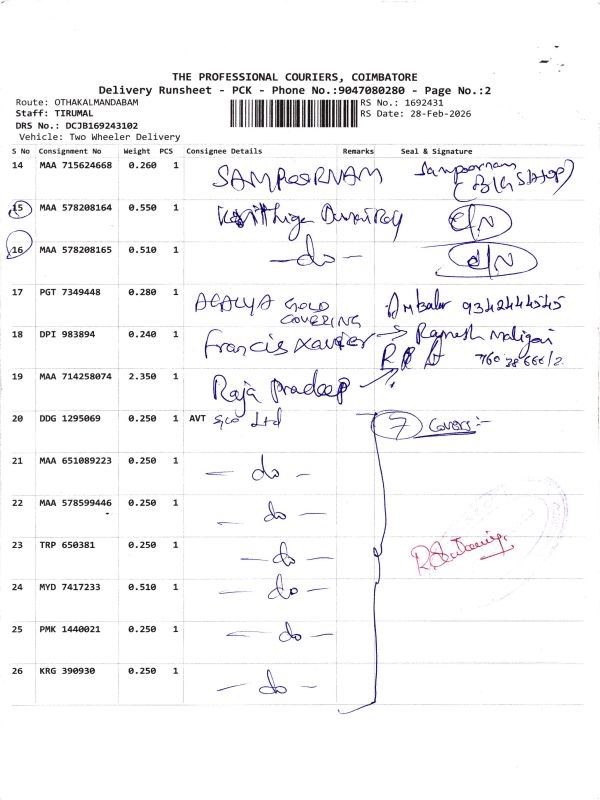 THE PROFESSIONAL COURIERS, COIMBATORE
Delivery Runsheet - PCK - Phone No.:9047080280 - Page No.:2
Route: OTHAKALMANDABAM RS No.: 1692431
Staff: TIRUMAL RS Date: 28-Feb-2026
DRS No.: DCJB169243102
Vehicle: Two Wheeler Delivery
S No Consignment No Weight PCS Consignee Details Remarks Seal & Signature
14 MAA 715624668 0.260 1 SAMPOORNAM Sampoornam
15 MAA 578208164 0.550 1 D/N
16 MAA 578208165 0.510 1 - do - D/N
17 PGT 7349448 0.280 1 GOLD COVERING 9342444545
18 DPI 983894 0.240 1 Francis Xavier Ramesh
19 MAA 714258074 2.350 1 Raja Pradeep
20 DDG 1295069 0.250 1 AVT Ltd 7 Covers:-
21 MAA 651089223 0.250 1 - do -
22 MAA 578599446 0.250 1 - do -
23 TRP 650381 0.250 1 - do -
24 MYD 7417233 0.510 1 - do -
25 PMK 1440021 0.250 1 - do -
26 KRG 390930 0.250 1 - do -